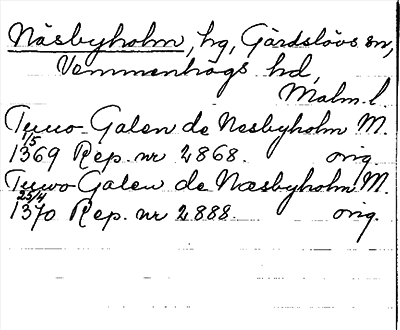 Näsbyholm, hg, Gärdslövs sn,
Vemmenhögs hd,
Malm. l
Tuuo Galen de Nesbyholm M.
1/5
1369 Rep. nr 2868. orig.
Tuwo Galen de Næsbyholm M.
25/4
1370 Rep. nr 2888. orig.